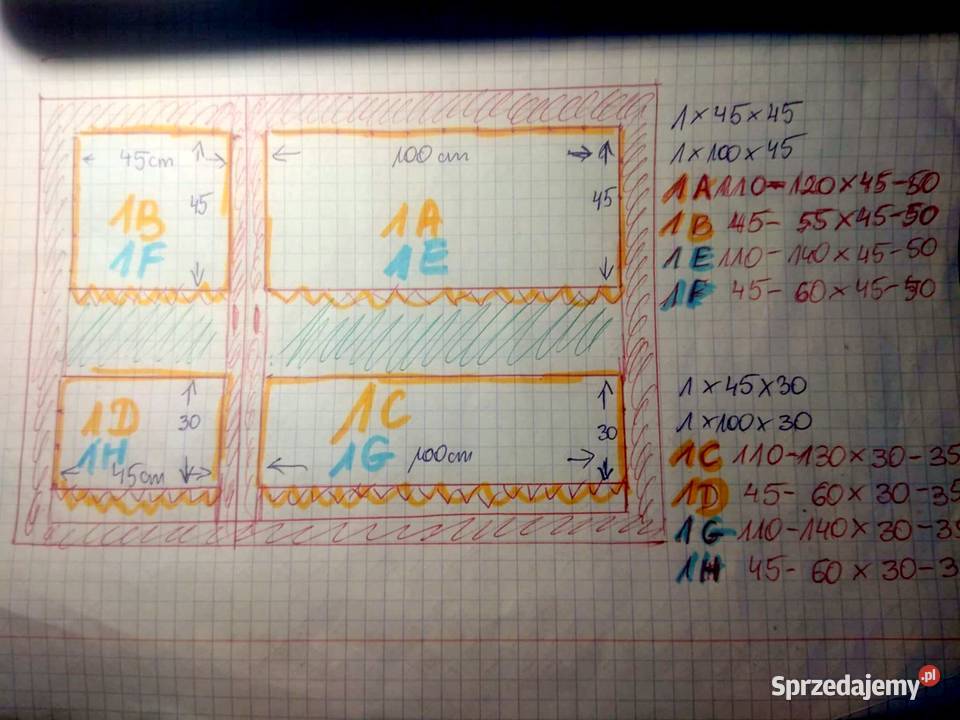 45cm
45
1B
1F
100cm
45
1A
1E
1D
1H
30
45cm
1C
1G
30
100cm
1×45×45
1×100×45
1A 110-120×45-50
1B 45-55×45-50
1E 110-140×45-50
1F 45-60×45-50
1×45×30
1×100×30
1C 110-130×30-35
1D 45-60×30-35
1G 110-140×30-35
1H 45-60×30-3
Sprzedajemy.pl